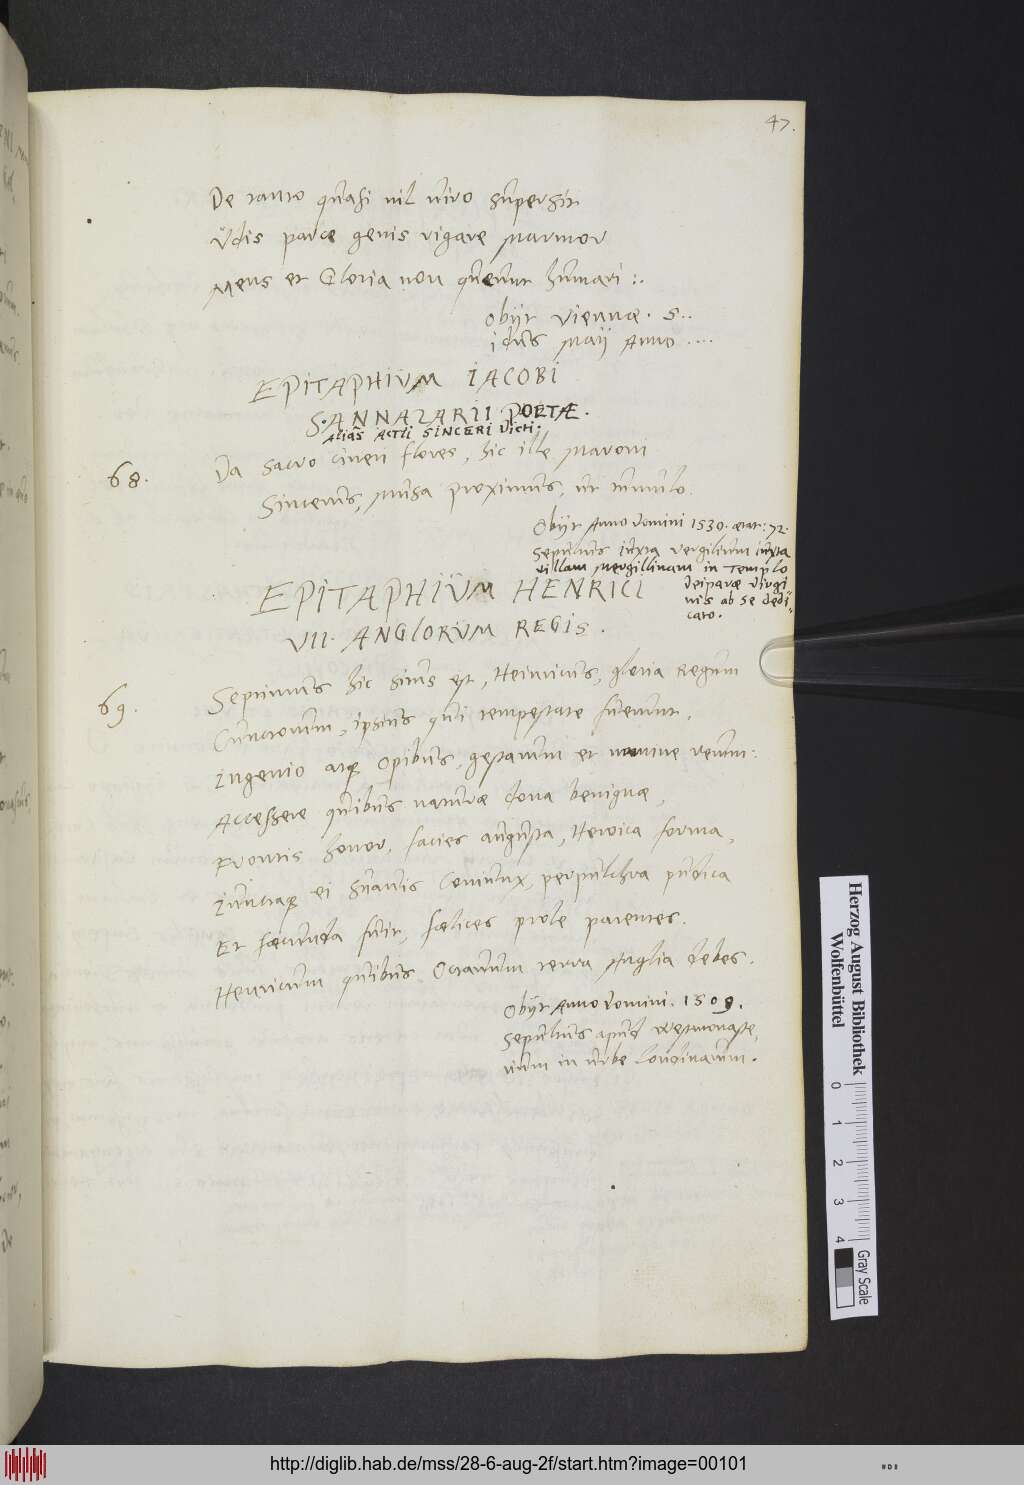 47.
De tanto quasi nil viro supersit
Vdis parce genis rigare marmor
Mens et Gloria non queunt humari :.
Obijt Viennæ. 5..
idus Maij Anno ....
EPITAPHIVM IACOBI
S.ANNAZARII POETÆ.
Alias ACTII SINCERI Dicti.
68. Da sacro cineri flores, hic ille Maroni
Sincerus, Musa proximus, ut tumulo.
Obijt Anno Domini 1530. ætat: 72.
Sepultus iuxta Vergilium iuxta
villam Mergillinam in Templo
Deiparæ Virgi
nis ab se dedi
cato.
EPITAPHIVM HENRICI
VII. ANGLORVM REGIS.
69. Septimus hic situs est, Heinricus, gloria Regum
Cunctorum, ipsius qui tempestate fuerunt,
Ingenio atque Opibus, gestarum et nomine rerum:
Accessere quibus naturæ dona benignæ,
Frontis honor, facies augusta, Heroica forma,
Iunctaque ei suauis Coniunx, perpulchra pudica
Et fæcunda fuit, fœlices prole parentes.
Henricum quibus Octauum terra Anglia debes.
Obijt Anno Domini. 1509.
Sepultus apud Westmonaste,
rium in urbe Londinarum.
Herzog August Bibliothek
Wolfenbüttel
0 1 2 3 4
Gray Scale
http://diglib.hab.de/mss/28-6-aug-2f/start.htm?image=00101